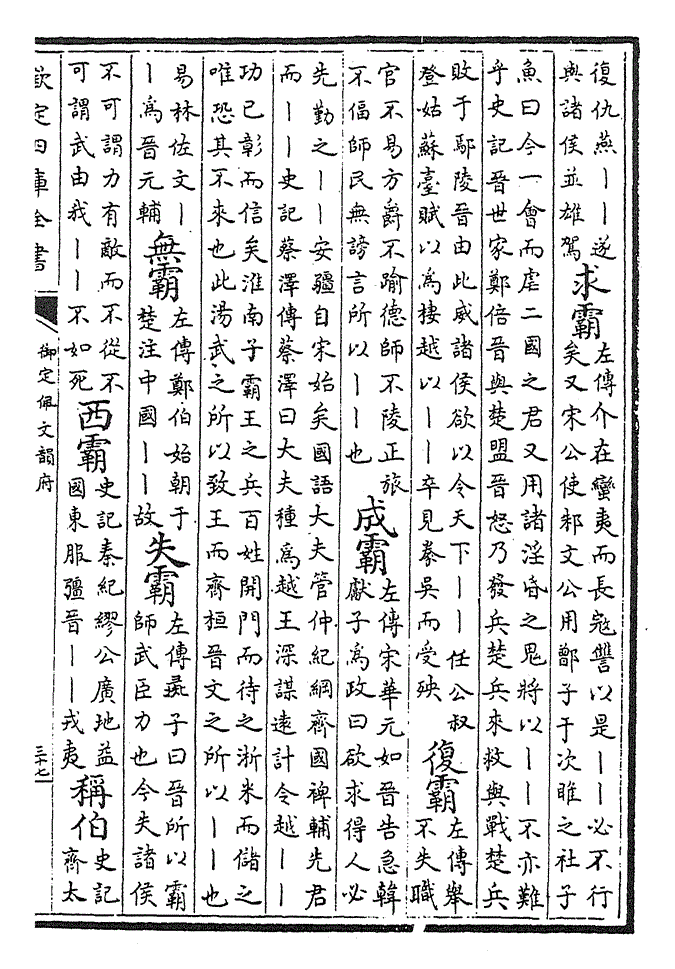 復仇燕丨丨遂
與諸侯並雄駕
求霸
左傳介在蠻夷而長冦讐以是丨丨必不行
矣又宋公使邾文公用鄫子于次睢之社子
魚曰今一會而虐二國之君又用諸淫昏之鬼將以丨丨不亦難
乎史記晉世家鄭倍晉與楚盟晉怒乃發兵楚兵來救與戰楚兵
敗于鄢陵晉由此威諸侯欲以令天下丨丨任公叔
登姑蘇臺賦以爲棲越以丨丨卒見豢吳而受殃
復霸
左傳舉
不失職
官不易方爵不踰德師不陵正旅
不偪師民無謗言所以丨丨也
成霸
左傳宋華元如晉告急韓
獻子爲政曰欲求得人必
先勤之丨丨安疆自宋始矣國語大夫管仲紀綱齊國裨輔先君
而丨丨史記蔡澤傳蔡澤曰大夫種爲越王深謀遠計令越丨丨
功已彰而信矣淮南子霸王之兵百姓開門而待之淅米而儲之
唯恐其不來也此湯武之所以致王而齊桓晉文之所以丨丨也
易林佐文丨
丨爲晉元輔
無霸
左傳鄭伯始朝于
楚注中國丨丨故
失霸
左傳彘子曰晉所以霸
師武臣力也今失諸侯
不可謂力有敵而不從不
可謂武由我丨丨不如死
西霸
史記秦紀繆公廣地益
國東服彊晉丨丨戎夷
稱伯
史記
齊太
欽定四庫全書
御定佩文韻府
三十七